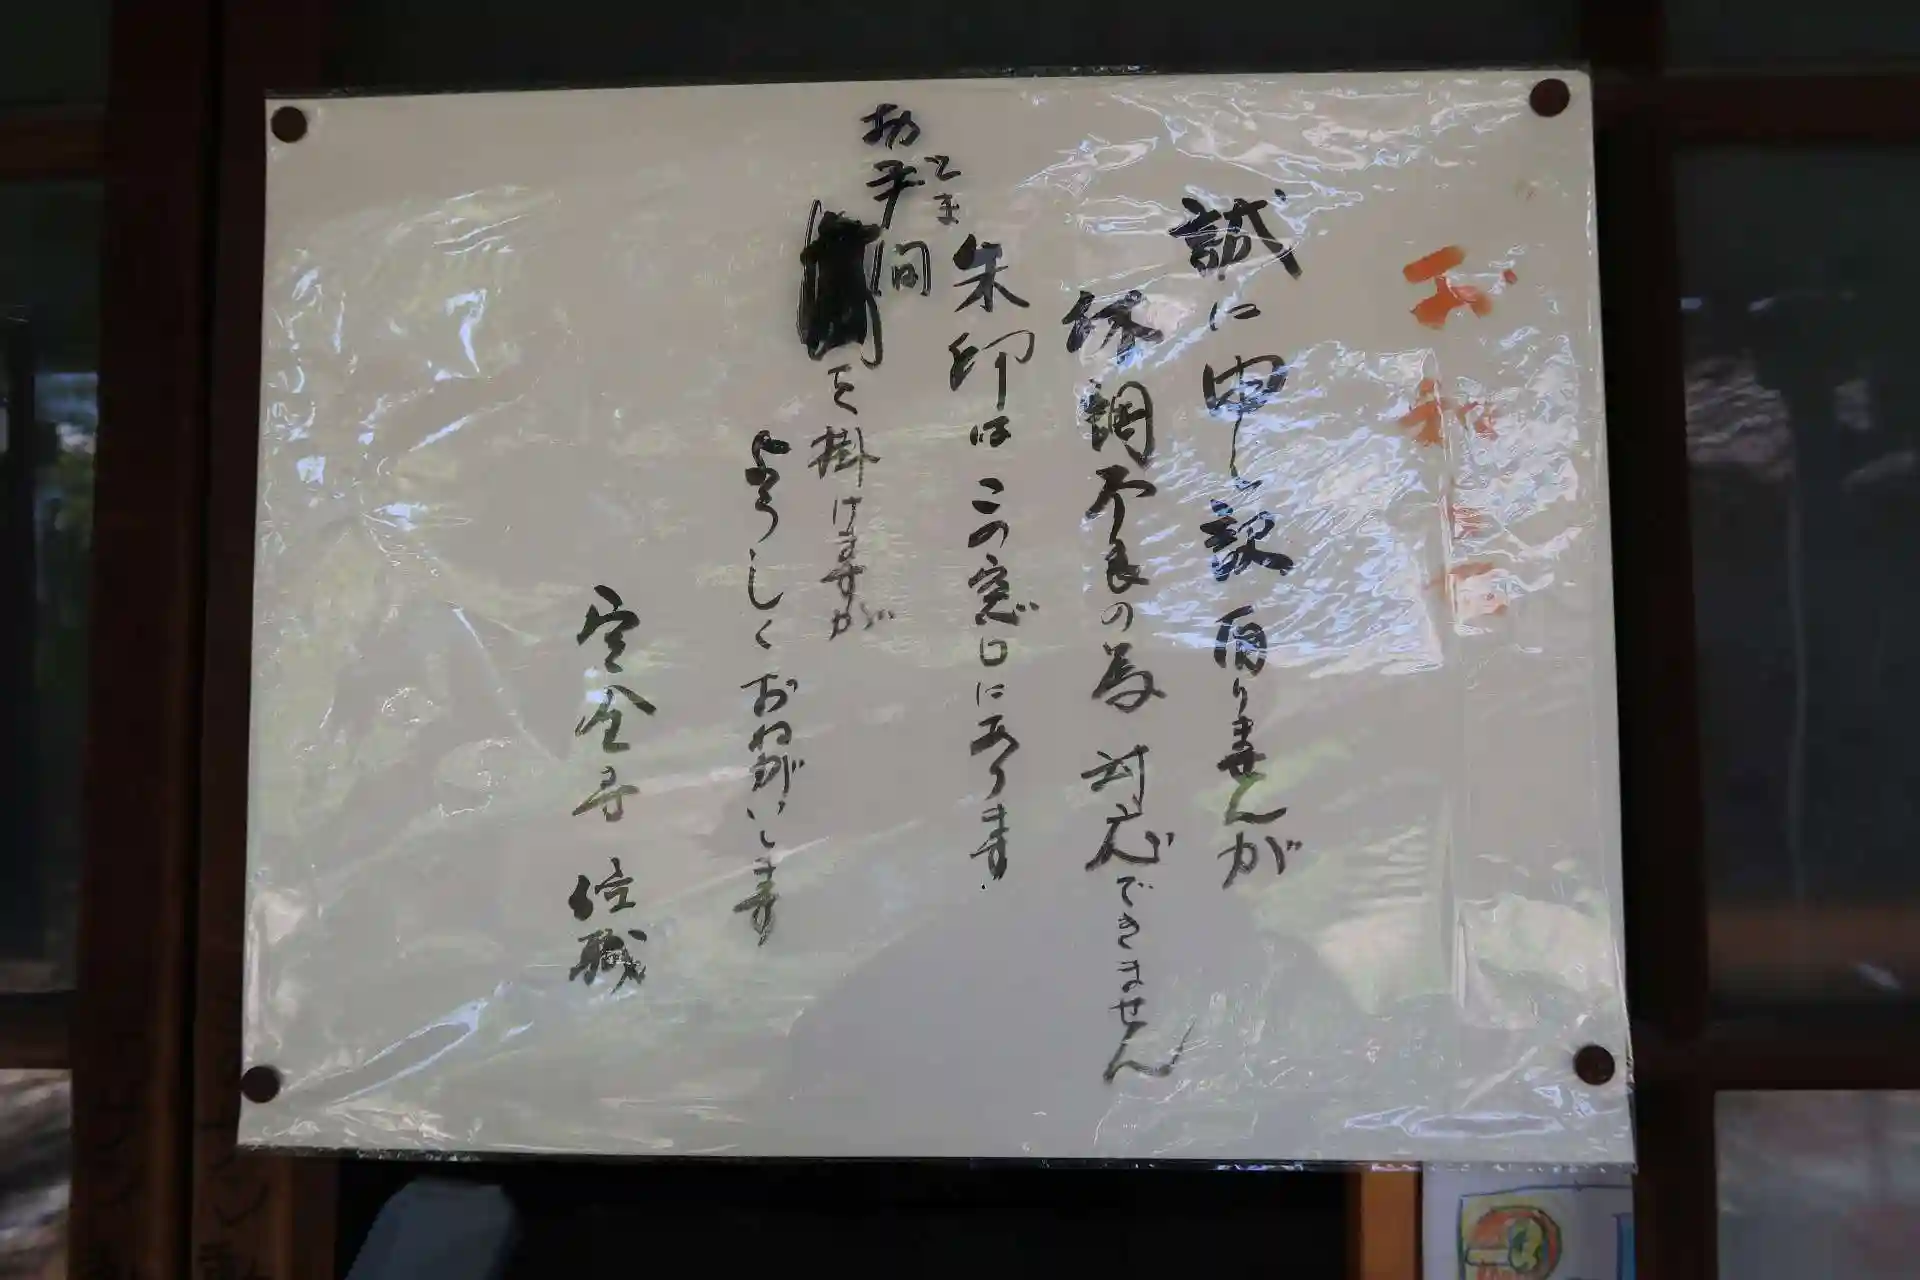 誠に申し訳有りませんが
体調不良の為対応できません
朱印はこの窓口にあります.
お手間
とま
を掛けますが
よろしくおねがいします
安全寺 住職